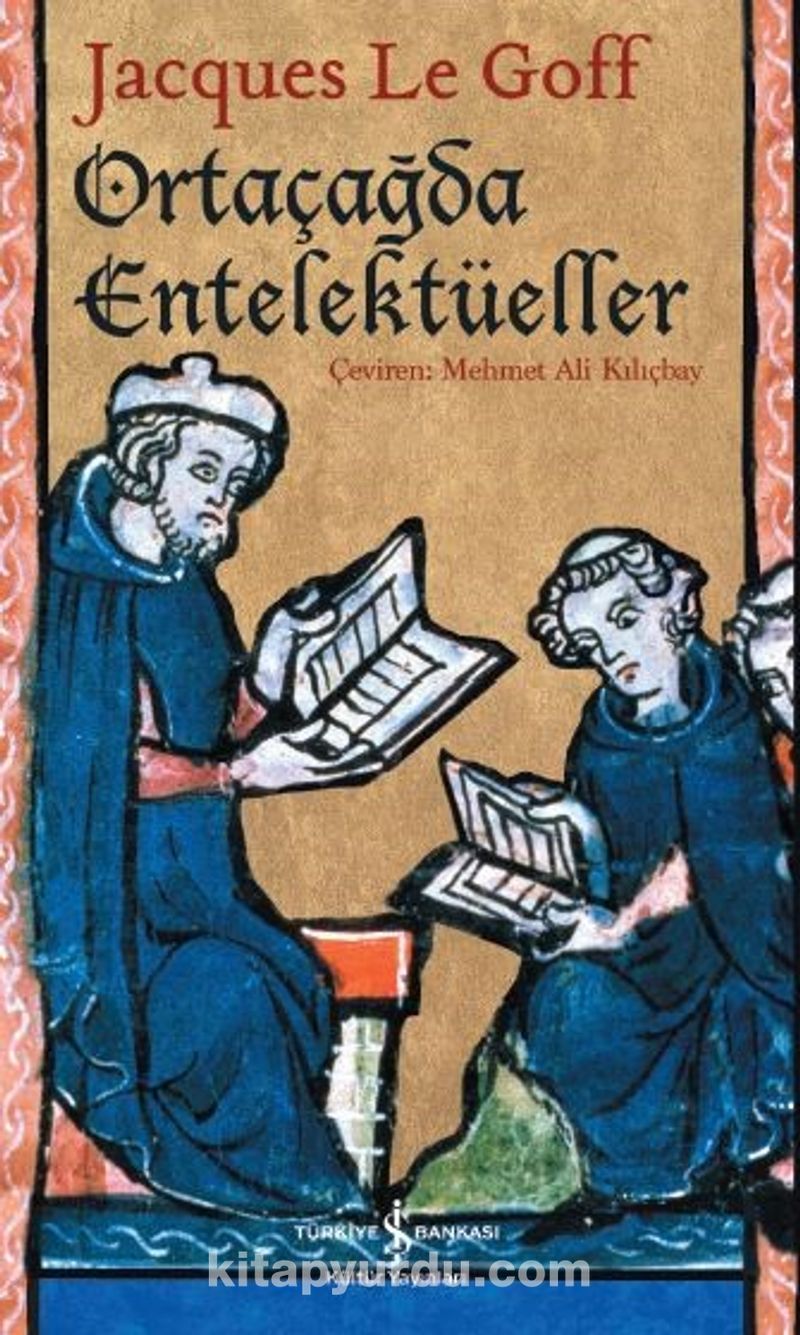 Jacques Le Goff
Ortaçağda
Entelektüeller
Çeviren: Mehmet Ali Kılıçbay
TÜRKİYE İŞ BANKASI
Kültür Yayınları
kitapyurdu.com